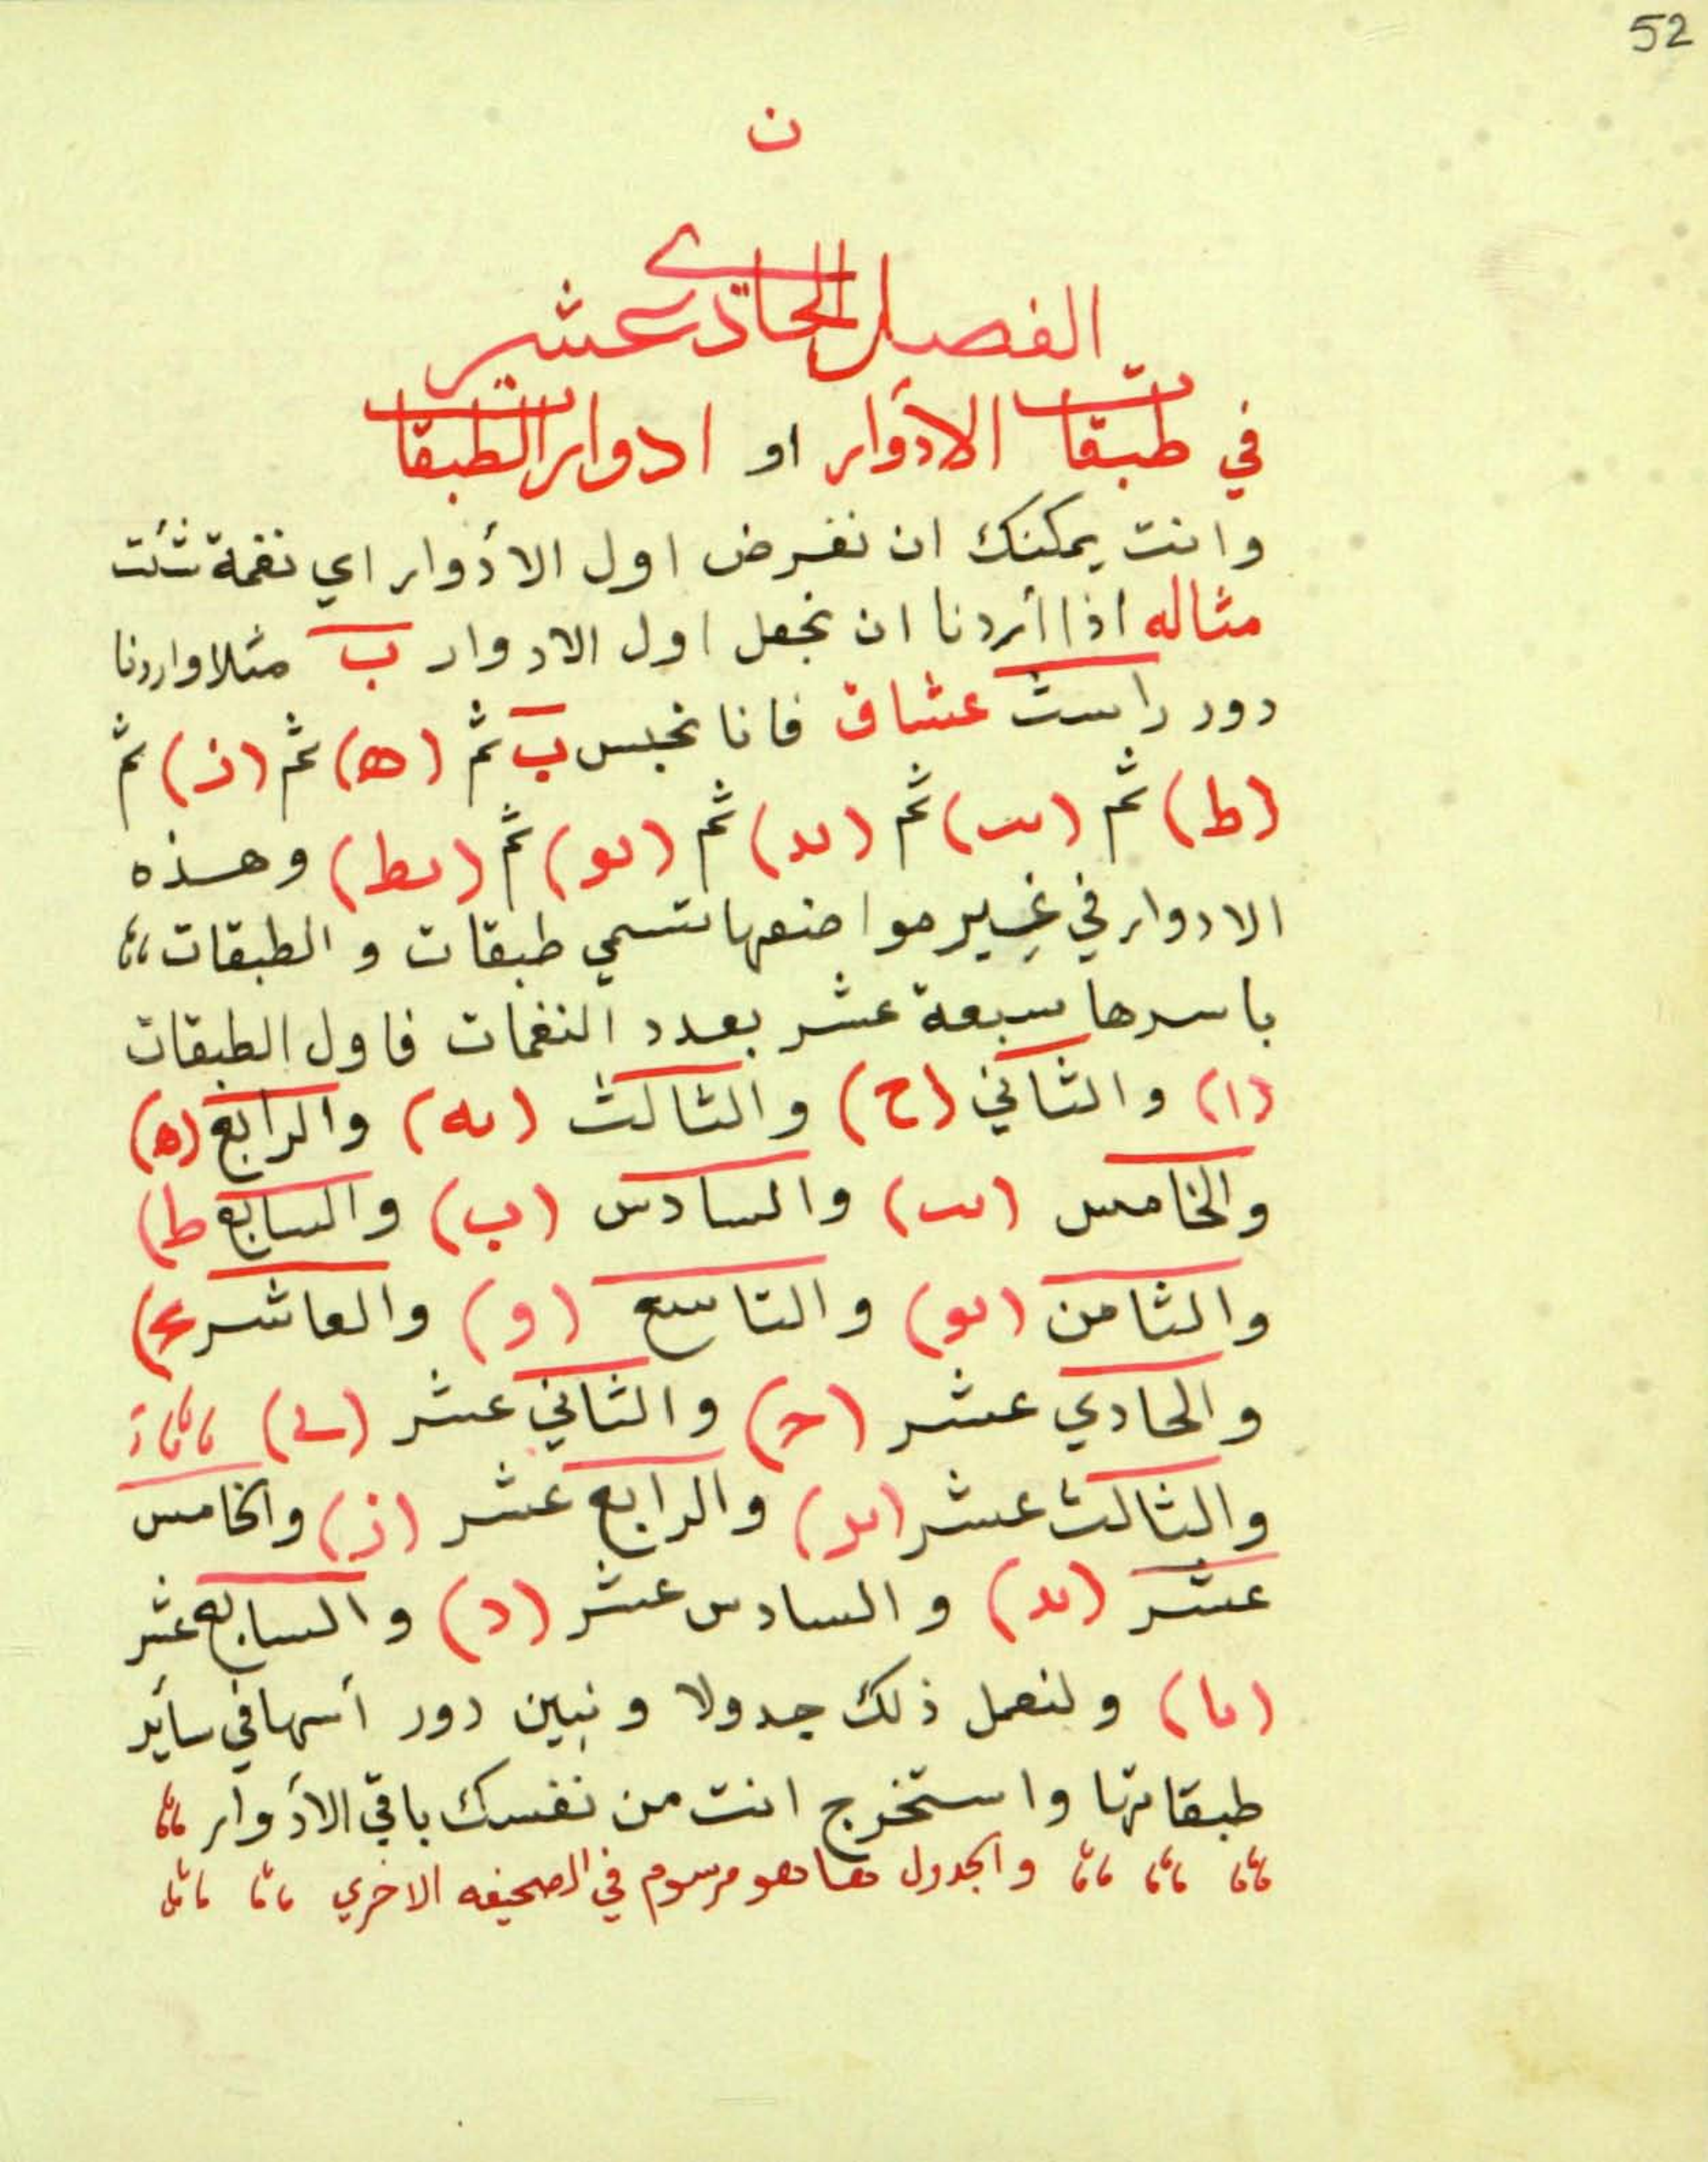 52
ن
الفصل الحادي عشر
في طبقات الأدوار او ادوار الطبقات
وانت يمكنك ان نفرض اول الأدوار اي نغمة شئت
مثاله اذا أردنا ان نجعل اول الادوار ب مثلا واردنا
دور راست عشاق فانا نجس ب ثم (ه) ثم (ز) ثم
(ط) ثم (ىب) ثم (ىد) ثم (ىو) ثم (ىط) وهذه
الادوار في غير مواضعها تسمي طبقات و الطبقات
باسرها سبعة عشر بعدد النغمات فاول الطبقات
(ا) والثاني (ح) والثالث (ىه) والرابع (ه)
والخامس (ىب) والسادس (ب) والسابع ط)
والثامن (ىو) والتاسع (و) والعاشر
والحادي عشر (ح) والثاني عشر (ى)
والثالث عشر (ىد) والرابع عشر (ز) والخامس
عشر (ىد) والسادس عشر (د) والسابع عشر
(ىا) ولنعمل ذلك جدولا ونبين دور أسها في سأير
طبقاتها واستخرج انت من نفسك باقي الأدوار
والجدول هاهو مرسوم في الصحيفه الاخري